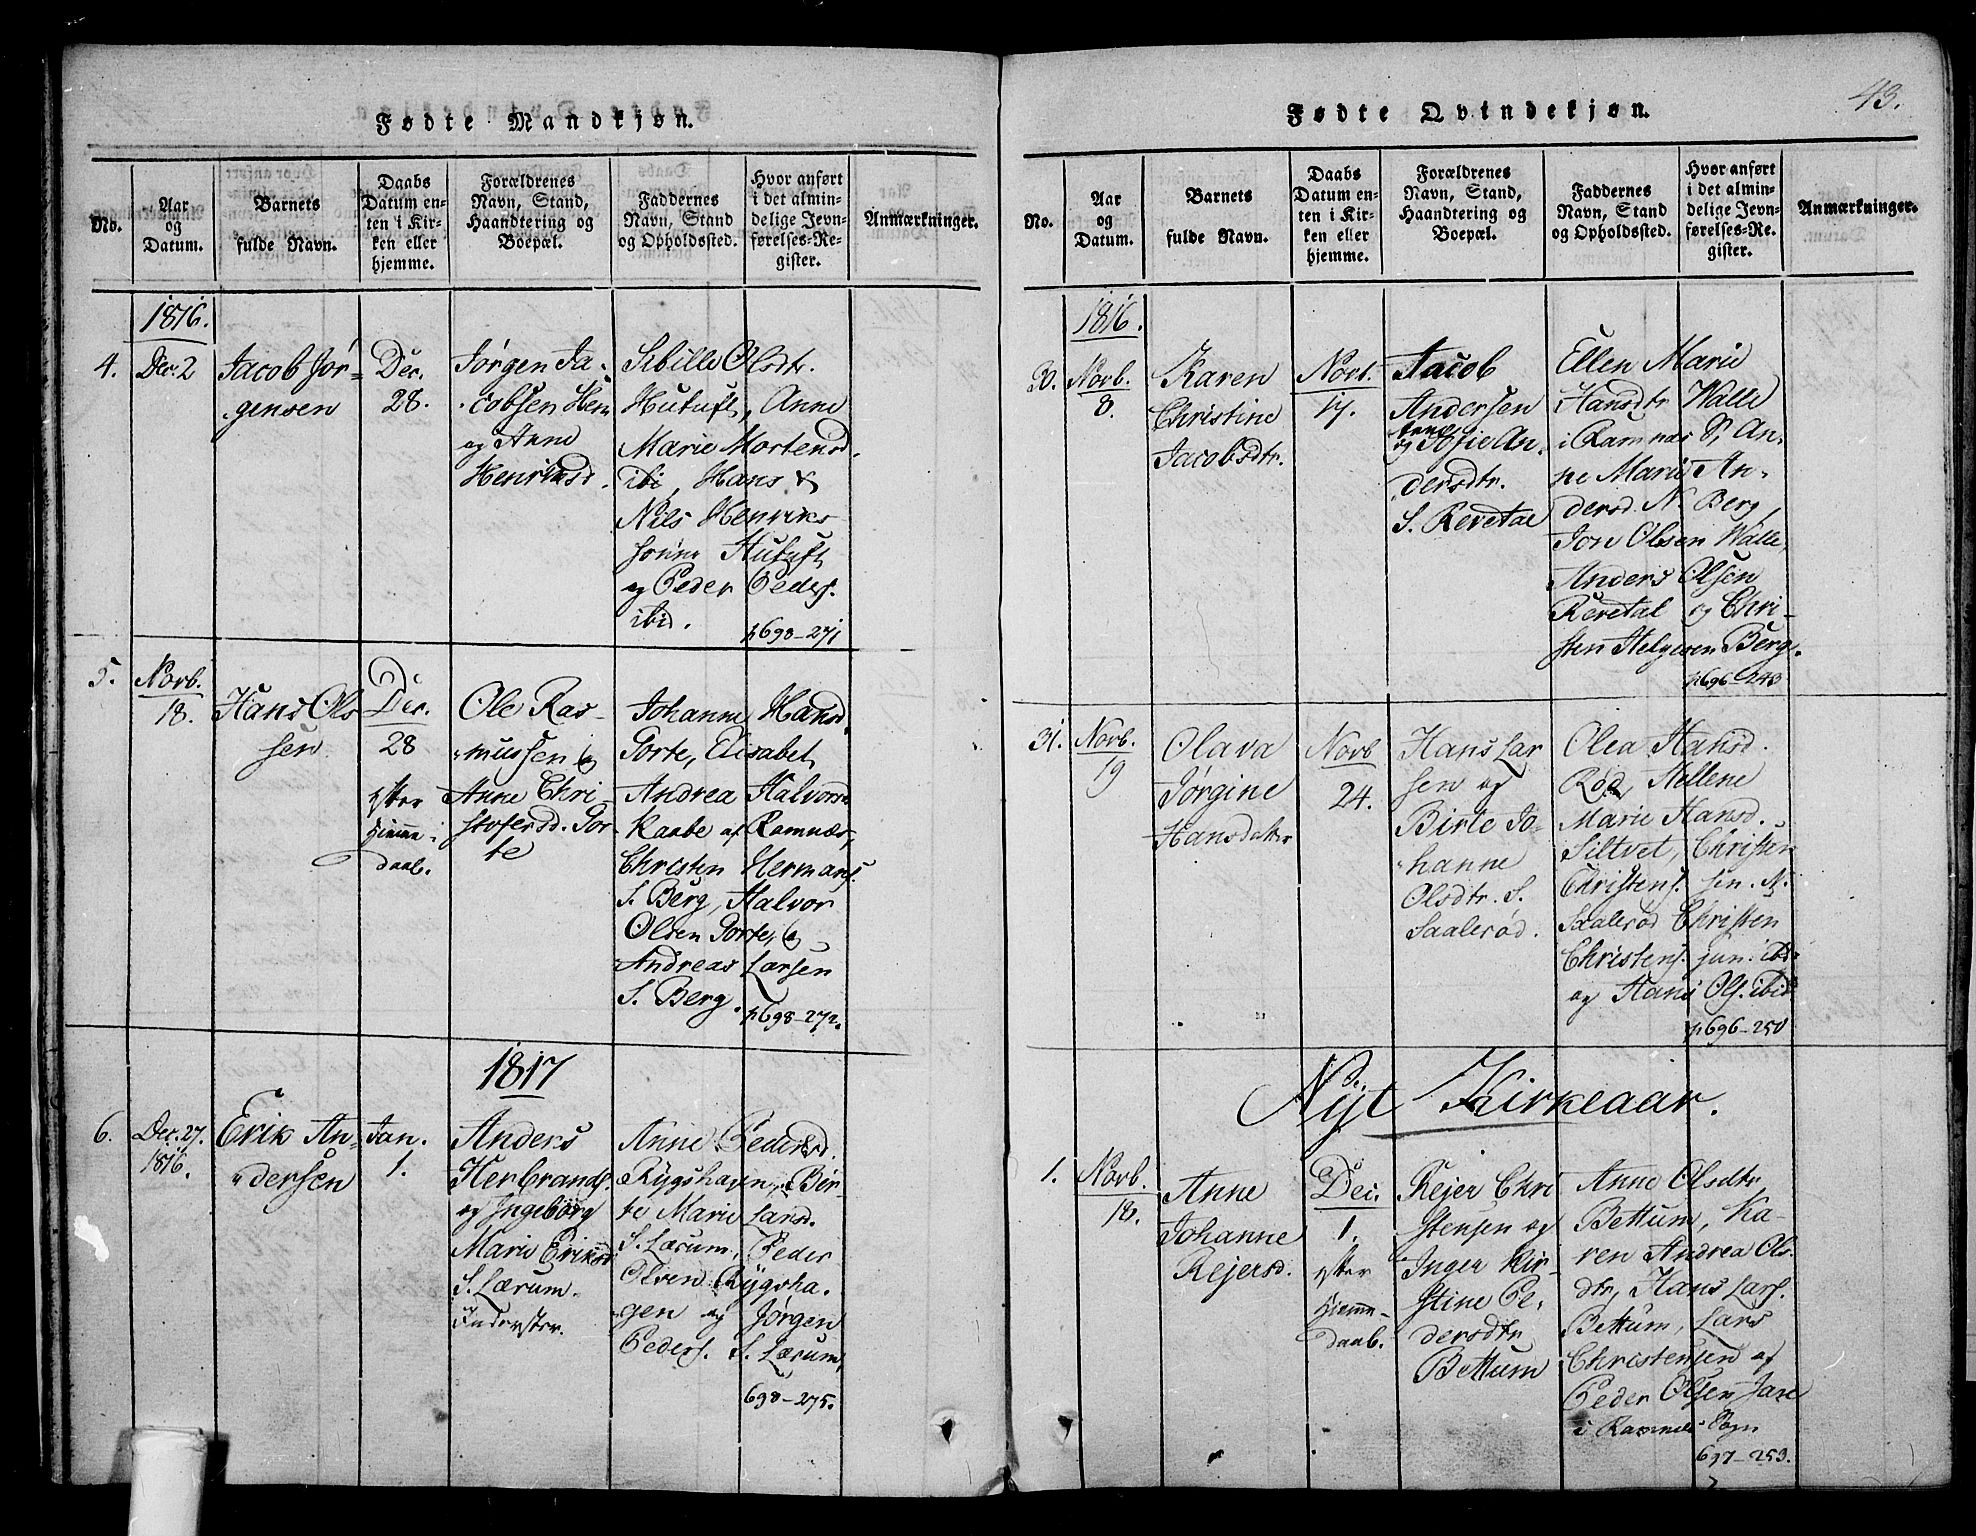 Fødte Mandkjøn.
No.
Aar
og
Datum.
Barnets
fulde Navn.
Daabs
Datum en-
ten i Kir-
ken eller
hjemme.
Forældrenes
Navn, Stand,
Haandtering og
Boepæl.
Faddernes
Navn, Stand
og Opholdssted.
Hvor anført
i det almin-
delige Jevn-
førelses-Re-
gister.
Anmærkninger.
1816.
4.
Dec. 2
Jacob Jør-
gensen
Dec.
28.
Jørgen Ja-
cobsen Hem
og Anne
Henriksd.
Sibille Olsdtr.
Hutuft, Anne
Marie Mortensd.
ibi, Hans &
Nils Henriks
sønne Hutuft
og Peder Peders.
ibid.
p698-271
5.
Novb.
18.
Hans Ols
sen
Dec.
28
efter
Hiemme
daab.
Ole Ras-
mussen og
Anne Chri-
stofersd. Por-
te
Johanne Hansd.
Porte, Elisabet
Andrea Halvorsd
Kaabe af Ramnæs,
Christen Hermans.
S. Berg, Halvor
Olsen Porte, og
Andreas Larsen
S. Berg.
p698-272.
1817
6.
Dec. 27.
1816.
Erik An-
dersen
Jan.
1.
Anders
Herbrands.
og Ingebörg
Marie Eriksd
S. Lærum.
Inderster.
Anne Pedersd.
Rygshavn, Bir-
te Marie Larsd.
S. Lærum, Peder
Olsen Rygsha-
gen og Jørgen
Peders. S. Lærum,
698-275.
Fødte Qvindekjøn.
43.
No.
Aar
og
Datum.
Barnets
fulde Navn.
Daabs
Datum en-
ten i Kir-
ken eller
hjemme.
Forældrenes
Navn, Stand,
Haandtering og
Boepæl.
Faddernes
Navn, Stand
og Opholdssted.
Hvor anført
i det almin-
delige Jevn-
førelses-Re-
gister.
Anmærkninger.
1816.
30.
Novb.
8.
Karen
Christine
Jacobsdtr.
Novb.
17.
Jacob
Andersen
Anne
og Sofie An-
dersdtr.
S. Revetal
Ellen Marie
Hansdtr Walle
i Ramnæs S, An-
ne Marie An-
dersd. N. Berg,
Jon Olsen Walle,
Anders Olsen
Revetal og Chri-
sten Helgesen Berg.
p696-248
31.
Novb.
19
Olava
Jørgine
Hansdatter
Novb
24.
Hans Lar
sen og
Birte Jo-
hanne
Olsdtr. S.
Saalerød.
Olea Hansd.
Rød, Hellene
Marie Hansd.
Siltvet, Christen
Christens. sen. N.
Saalerød Christen
Christens. jun. ibd.
og Hans Ols. ibid
p696-250
Nyt Kirkeaar.
1.
Novb.
18.
Anne
Johanne
Rejersd.
Dec.
1.
efter
Hiemme-
daab.
Rejer Chri
stensen og
Inger Kir-
stine Pe-
dersdtr
Bettum
Anne Olsdtr
Bettum, Ka-
ren Andrea Ols-
dtr, Hans Lars.
Bettum, Lars
Christensen og
Peder Olsen Jare
i Ramnæs Sogn
697-253.